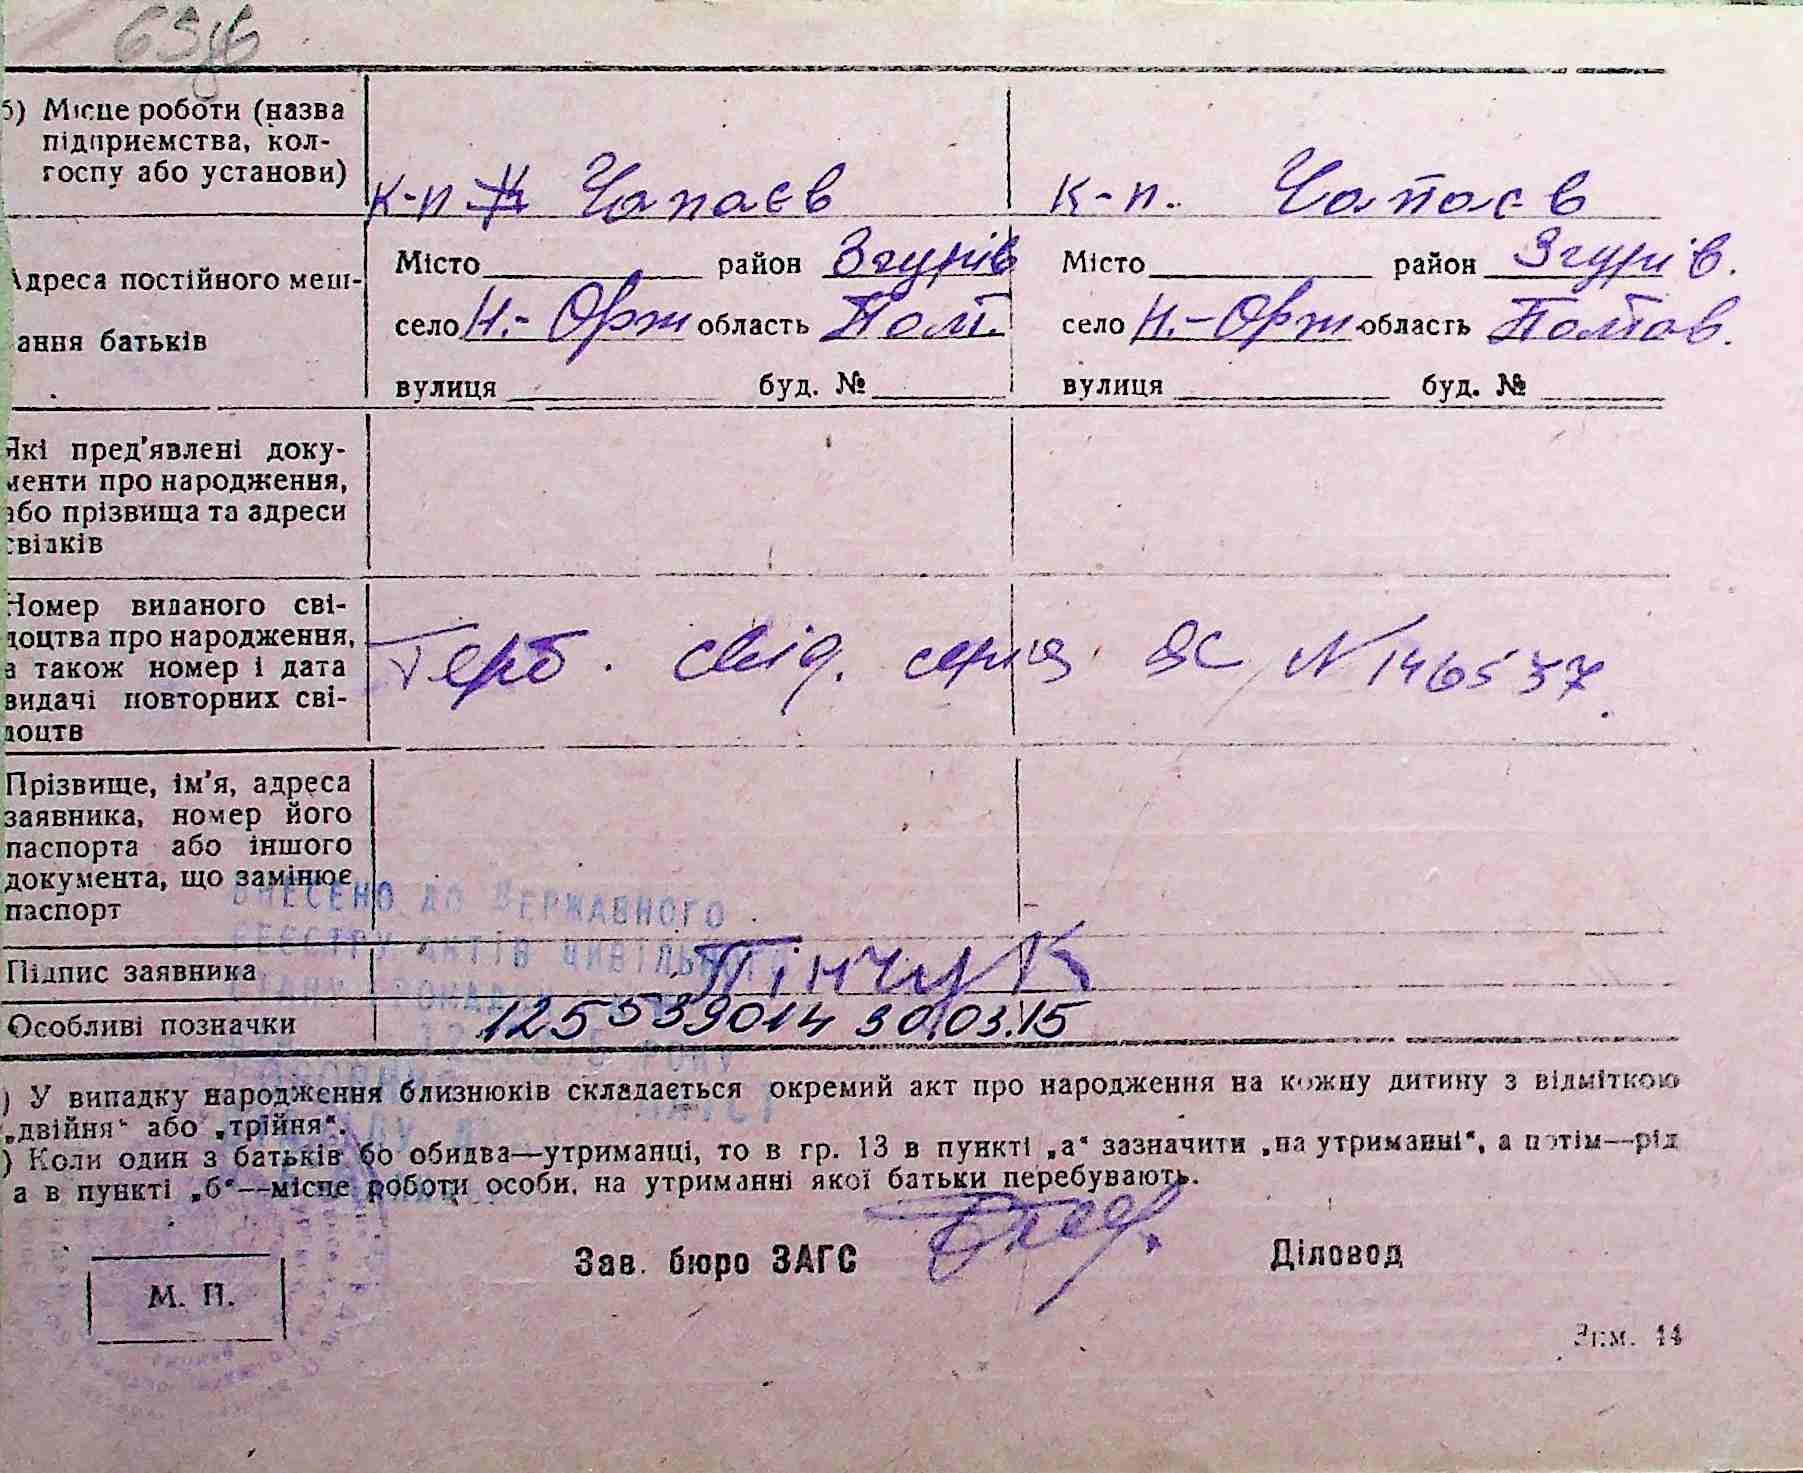 б) Місце роботи (назва
підприємства, кол-
госпу або установи)
К-п Чапаєв
К-п. Чапаєв
Адреса постійного меш-
кання батьків
Місто район Згурів
село Н.-Орж область Полт.
вулиця буд. №
Місто район Згурів.
село Н.-Орж область Полтав.
вулиця буд. №
Які пред'явлені доку-
менти про народження,
або прізвища та адреси
свідків
Номер виданого сві-
доцтва про народження,
а також номер і дата
видачі повторних сві-
доцтв
Герб. свід. серія ЯС N 146537.
Прізвище, ім'я, адреса
заявника, номер його
паспорта або іншого
документа, що замінює
паспорт
ВНЕСЕНО ДО ДЕРЖАВНОГО
РЕЄСТРУ АКТІВ ЦИВІЛЬНОГО
СТАНУ ГРОМАДЯН
Підпис заявника
Пінчук
Особливі позначки
125539014 30.03.15
) У випадку народження близнюків складається окремий акт про народження на кожну дитину з відміткою
„двійня“ або „трійня“.
) Коли один з батьків бо обидва—утриманці, то в гр. 13 в пункті „а“ зазначити „на утриманні“, а потім—рід
а в пункті „б“—місце роботи особи, на утриманні якої батьки перебувають.
Зав. бюро ЗАГС
Діловод
М. П.
Зам. 44